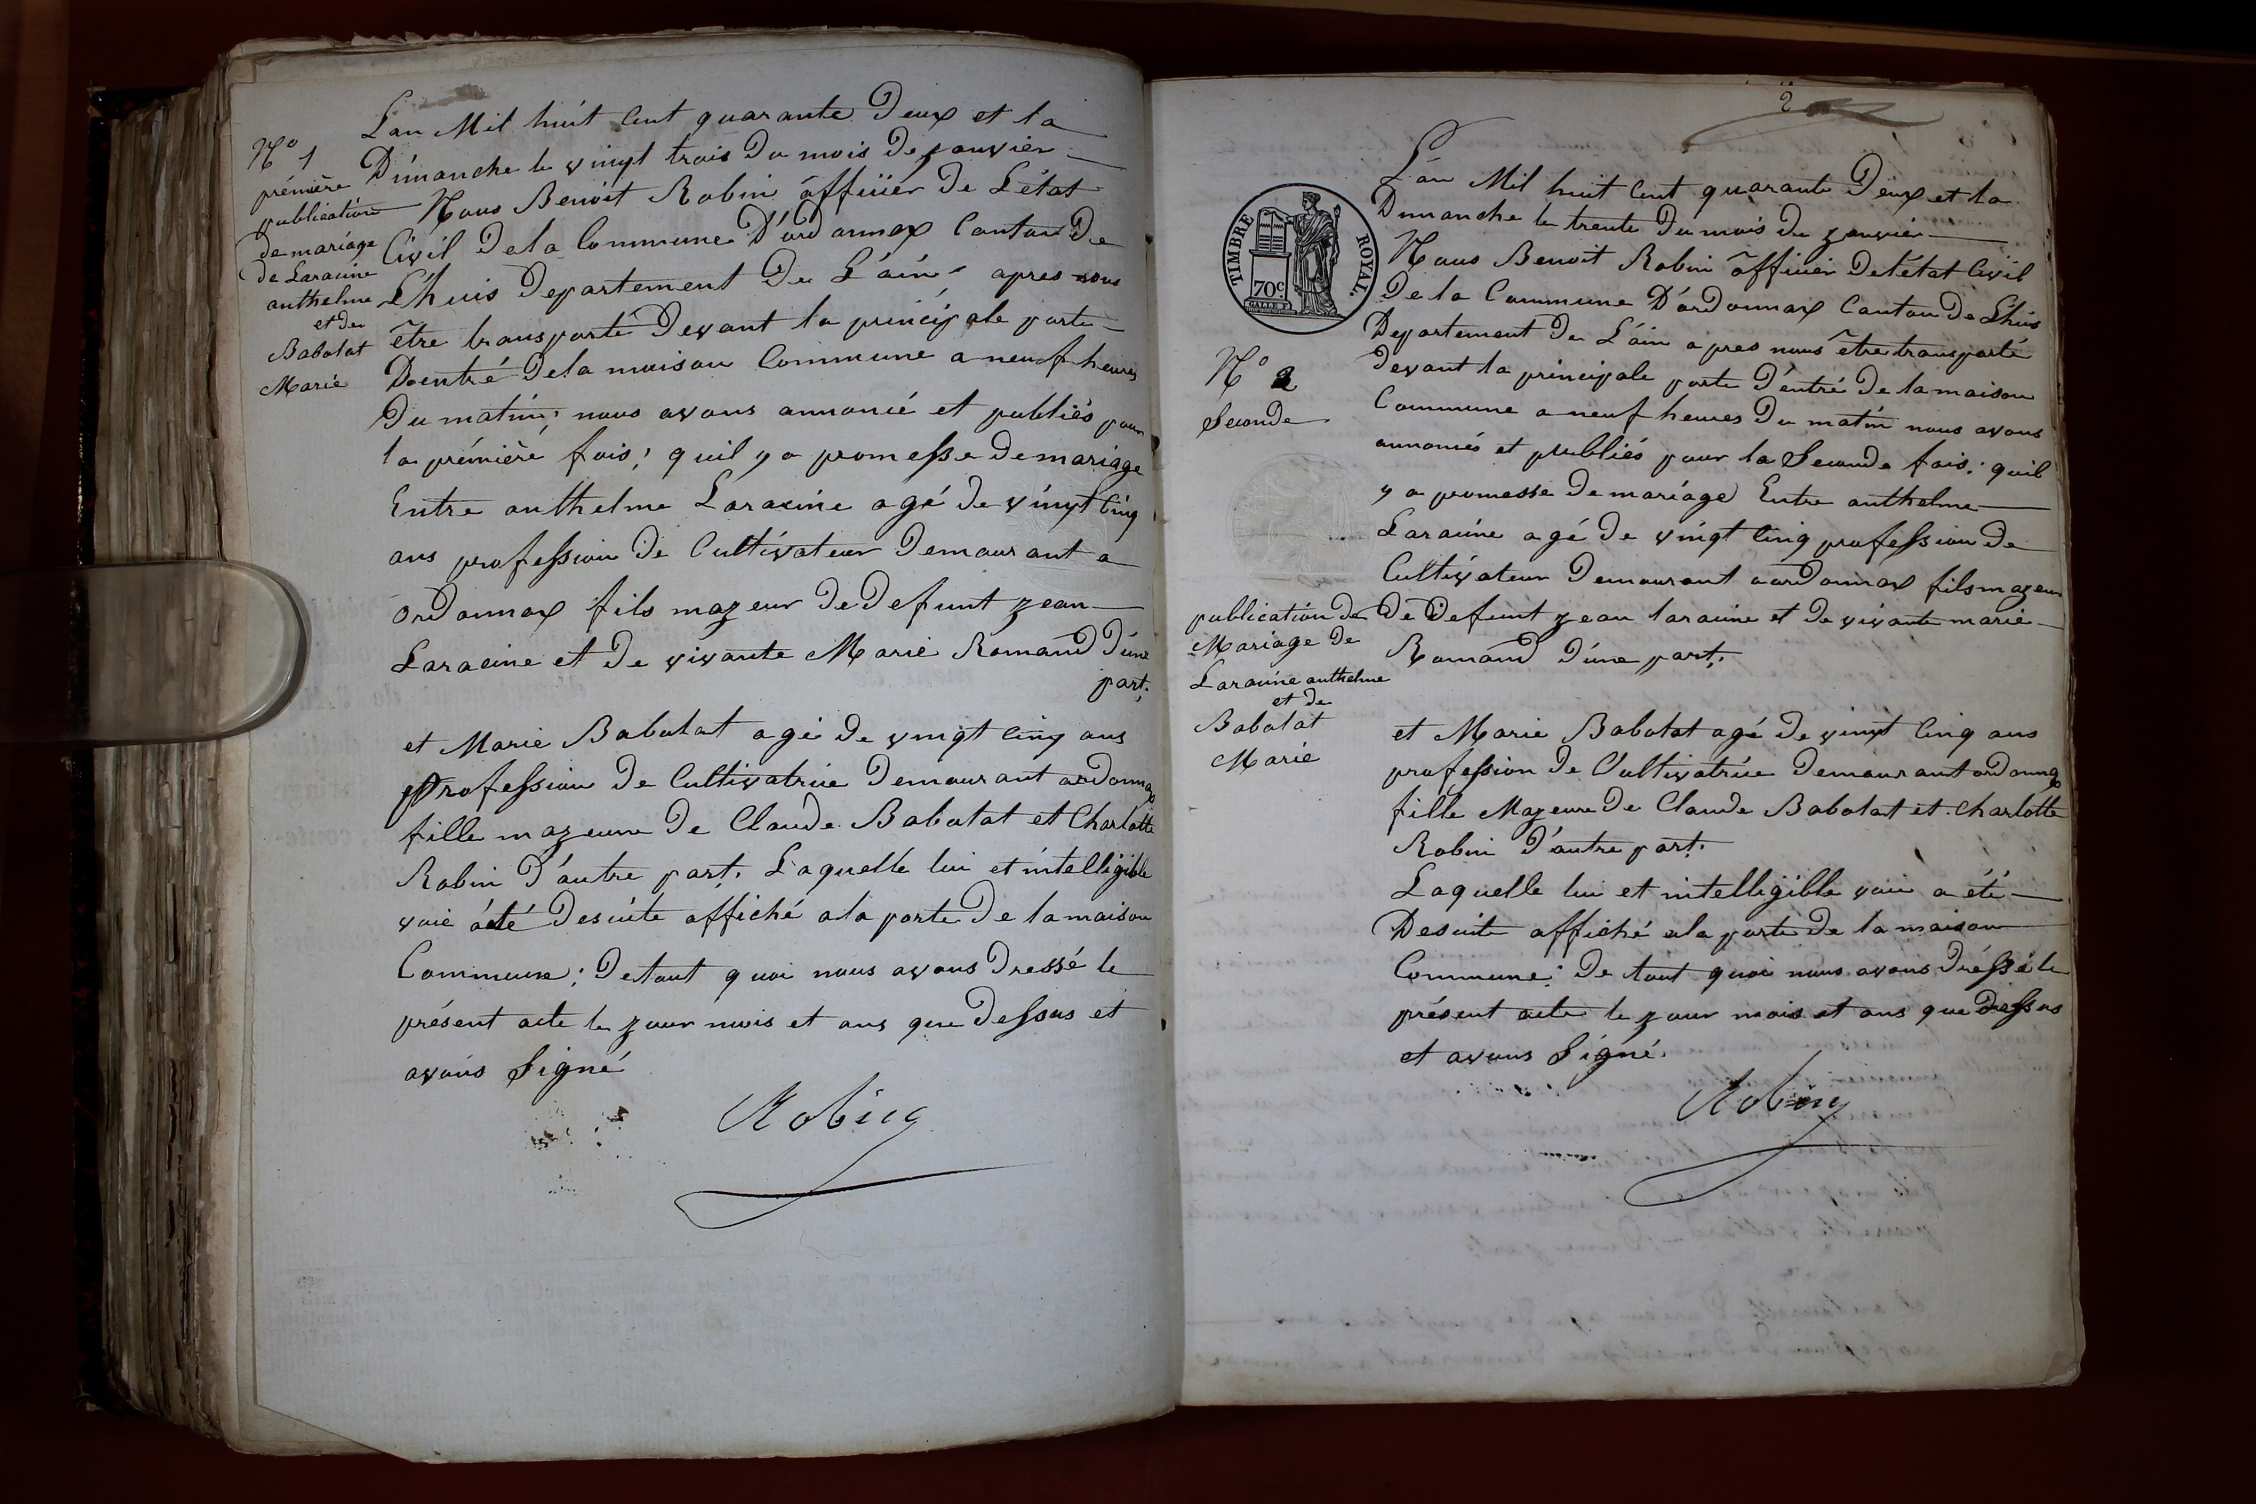 N° 1
prémière
publication
de mariage
de Laracine
anthelme
et de
Babolat
Marie
L'an Mil huit Cent quarante Deux et la
Dimanche le vingt trois Du mois De janvier
Nous Benoit Robin officier De L'état
Civil De la Commune D'ordonnax Canton De
L'huis Departement De L'ain apres nous
être transporté Devant la principale porte
D'entré De la maison Commune a neuf heures
Du matin; nous avons annoncé et publiés pour
la prémière fois; quil y a promesse De mariage
Entre anthelme Laracine agé de vingt Cinq
ans profession De Cultivateur Demourant a
ordonnax fils mazeur De Defunt zean
Laracine et De vivante Marie Romand D'une
part;
et Marie Babolat agé De vingt Cinq ans
profession De Cultivatrice Demourant ordonnax
fille mazeure De Claude Babolat et Charlotte
Robin D'autre part. Laquelle lui et intelligible
voie a été Desuite affiché a la porte De la maison
Commune; De tout quoi nous avons Dressé le
présent acte le zour mois et ans que Dessus et
avons Signé
Robin
2
TIMBRE ROYAL.
70c
N° 2
Seconde
publication de
Mariage De
Laracine anthelme
et de
Babolat
Marie
L'an Mil huit Cent quarante Deux et la
Dimanche le trente Du mois De janvier
Nous Benoit Robin officier De l'état Civil
De la Commune D'ordonnax Canton De Lhuis
Departement De L'ain apres nous être transporté
devant la principale porte D'entré De la maison
Commune a neuf heures Du matin nous avons
annoncés et publiés pour la Seconde fois; quil
y a promesse De mariage Entre anthelme
Laracine agé De vingt Cinq profession De
Cultivateur Demourant a ordonnax fils mazeur
De Defunt zean laracine et De vivante marie
Romand D'une part;
et Marie Babolat agé De vingt Cinq ans
profession De Cultivatrice Demourant ordonnax
fille Mazeure De Claude Babolat et Charlotte
Robin D'autre part.
Laquelle lui et intelligible voie a été
Desuite affiché a la porte De la maison
Commune; De tout quoi nous avons Dréssé le
présent acte le zour mois et ans que Dessus
et avons Signé.
Robin